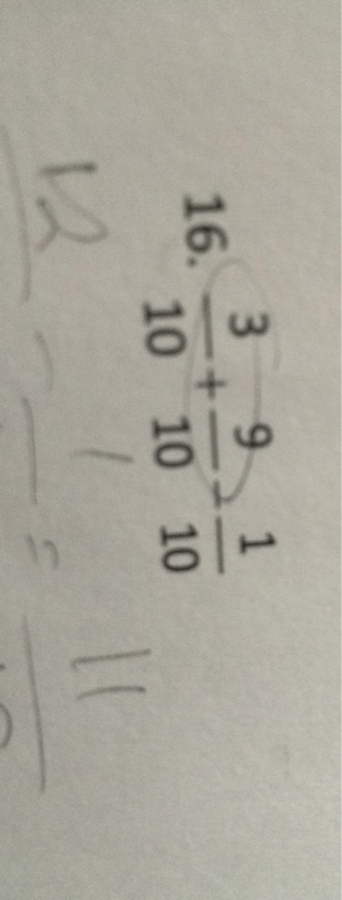 16. 3/10 + 9/10 - 1/10
12 - 1 = 11